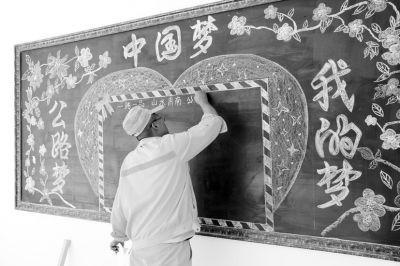 中国梦
公路梦
我的梦